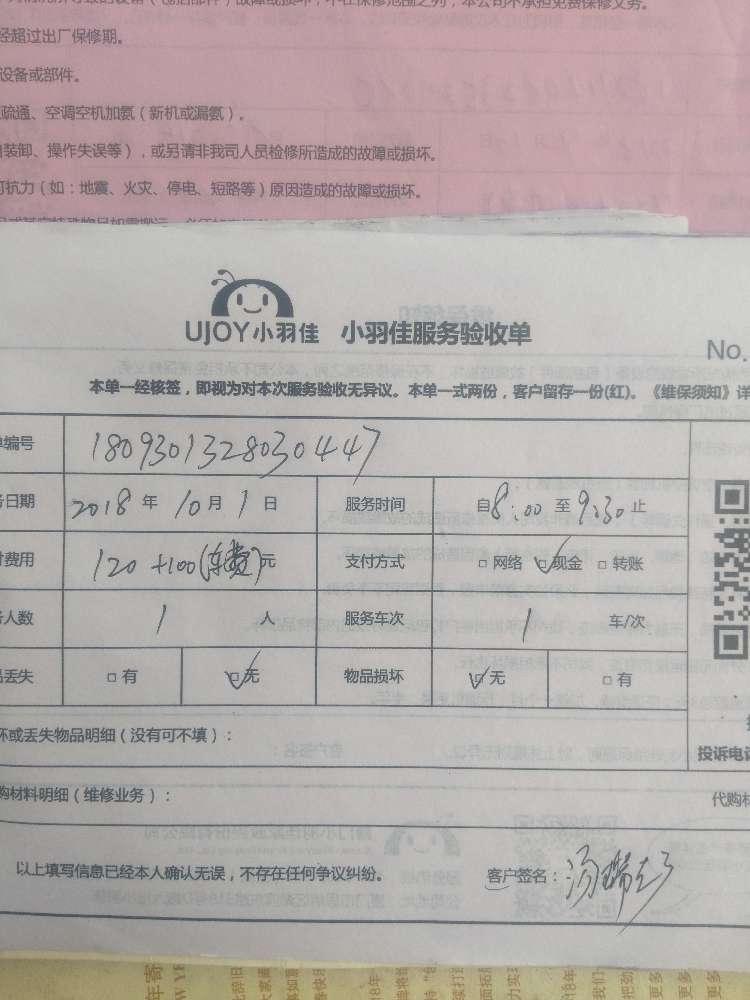 经超过出厂保修期。
设备或部件。
疏通、空调空机加氨（新机或漏氨）。
装卸、操作失误等），或另请非我司人员检修所造成的故障或损坏。
抗力（如：地震、火灾、停电、短路等）原因造成的故障或损坏。
UJOY小羽佳 小羽佳服务验收单
No.
本单一经核签，即视为对本次服务验收无异议。本单一式两份，客户留存一份(红)。《维保须知》详
单编号 1809301328030447
务日期 2018 年 10 月 1 日 服务时间 自 8:00 至 9:30 止
付费用 120 +100(车费) 元 支付方式 □ 网络 □ 现金 □ 转账
务人数 1 人 服务车次 1 车/次
品丢失 □ 有 □ 无 物品损坏 □ 无 □ 有
坏或丢失物品明细（没有可不填）：
投诉电话
购材料明细（维修业务）： 代购材
以上填写信息已经本人确认无误，不存在任何争议纠纷。 客户签名：